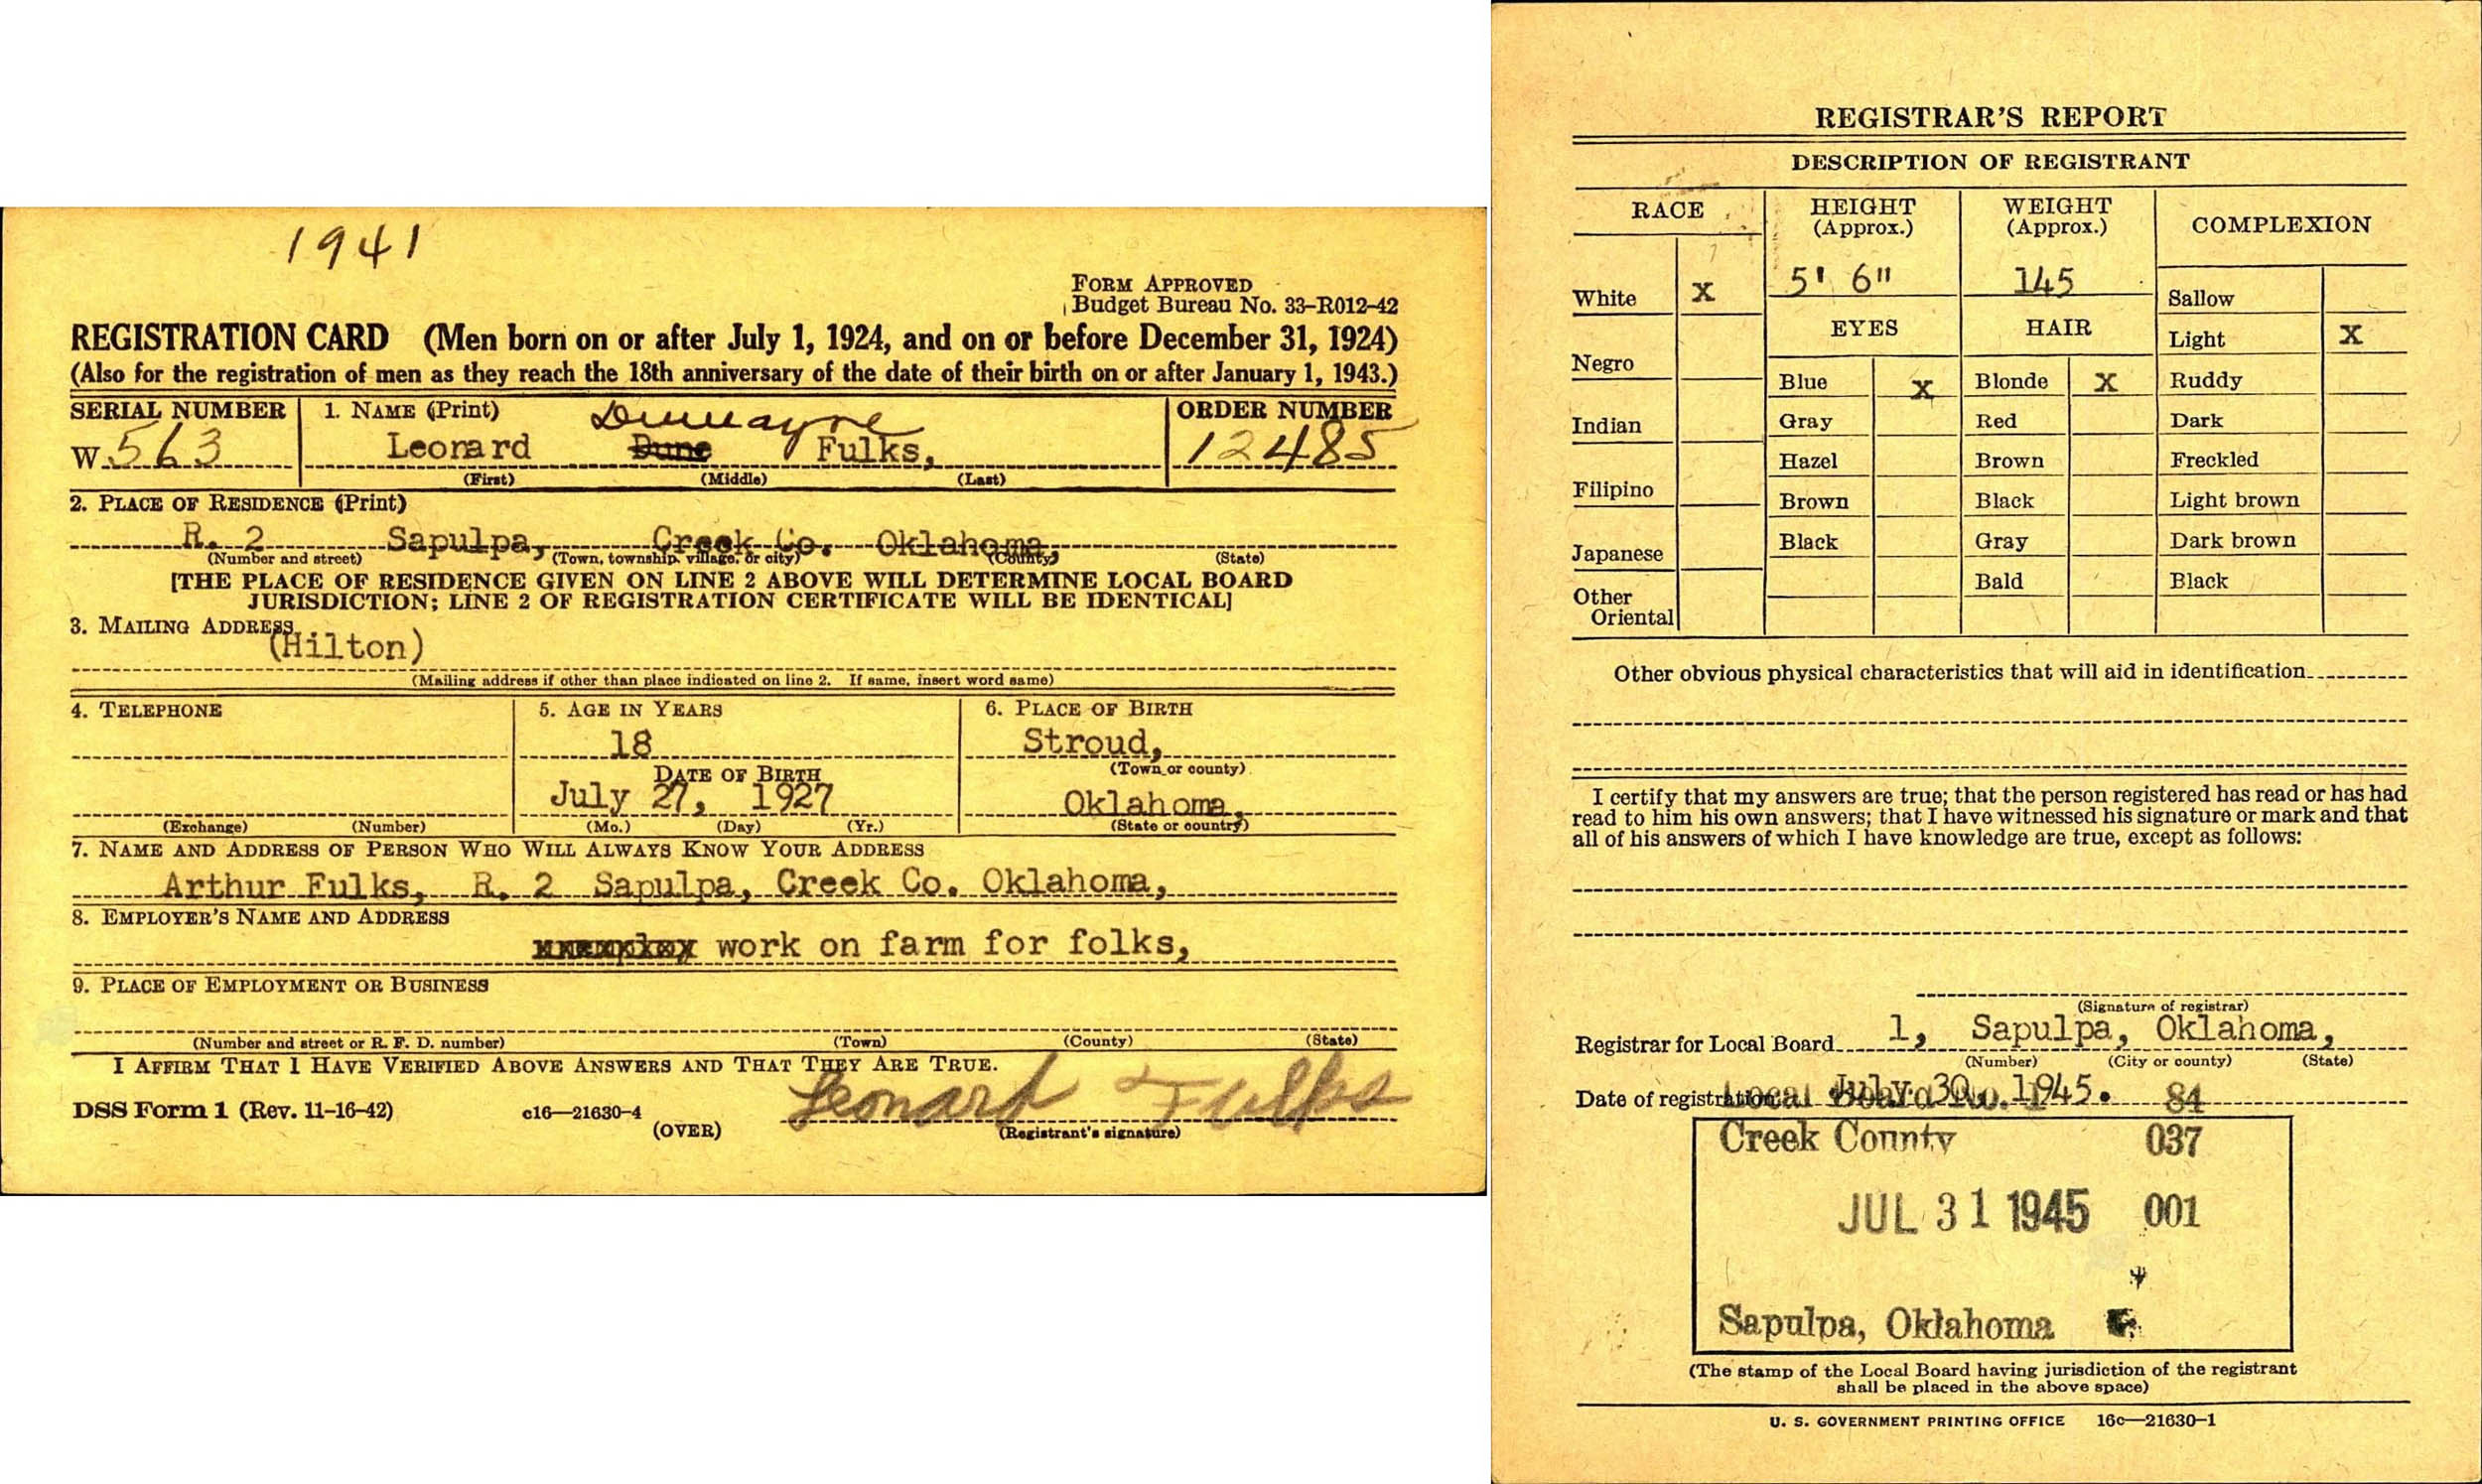 1941
FORM APPROVED
Budget Bureau No. 33-R012-42
REGISTRATION CARD (Men born on or after July 1, 1924, and on or before December 31, 1924)
(Also for the registration of men as they reach the 18th anniversary of the date of their birth on or after January 1, 1943.)
SERIAL NUMBER 1. NAME (Print) ORDER NUMBER
W 563 Leonard Dune Fulks, 12485
(First) (Middle) (Last)
2. PLACE OF RESIDENCE (Print)
R. 2 Sapulpa, Creek Co. Oklahoma,
(Number and street) (Town, township, village, or city) (County) (State)
[THE PLACE OF RESIDENCE GIVEN ON LINE 2 ABOVE WILL DETERMINE LOCAL BOARD
JURISDICTION; LINE 2 OF REGISTRATION CERTIFICATE WILL BE IDENTICAL]
3. MAILING ADDRESS
(Hilton)
(Mailing address if other than place indicated on line 2. If same, insert word same)
4. TELEPHONE 5. AGE IN YEARS 6. PLACE OF BIRTH
18 Stroud,
DATE OF BIRTH (Town or county)
July 27, 1927 Oklahoma,
(Exchange) (Number) (Mo.) (Day) (Yr.) (State or country)
7. NAME AND ADDRESS OF PERSON WHO WILL ALWAYS KNOW YOUR ADDRESS
Arthur Fulks, R. 2 Sapulpa, Creek Co. Oklahoma,
8. EMPLOYER'S NAME AND ADDRESS
work on farm for folks,
9. PLACE OF EMPLOYMENT OR BUSINESS
(Number and street or R. F. D. number) (Town) (County) (State)
I AFFIRM THAT I HAVE VERIFIED ABOVE ANSWERS AND THAT THEY ARE TRUE.
Leonard Fulks
DSS Form 1 (Rev. 11-16-42) c16—21630-4
(OVER) (Registrant's signature)
REGISTRAR'S REPORT
DESCRIPTION OF REGISTRANT
RACE HEIGHT (Approx.) WEIGHT (Approx.) COMPLEXION
White X 5' 6" 145 Sallow
EYES HAIR Light X
Negro Blue X Blonde X Ruddy
Indian Gray Red Dark
Hazel Brown Freckled
Filipino Brown Black Light brown
Japanese Black Gray Dark brown
Other Oriental Bald Black
Other obvious physical characteristics that will aid in identification
I certify that my answers are true; that the person registered has read or has had
read to him his own answers; that I have witnessed his signature or mark and that
all of his answers of which I have knowledge are true, except as follows:
(Signature of registrar)
Registrar for Local Board 1, Sapulpa, Oklahoma,
(Number) (City or county) (State)
Date of registration July 30, 1945.
Local Board No. 1 84
Creek County 037
JUL 31 1945 001
Sapulpa, Oklahoma
(The stamp of the Local Board having jurisdiction of the registrant
shall be placed in the above space)
U. S. GOVERNMENT PRINTING OFFICE 16c—21630-1